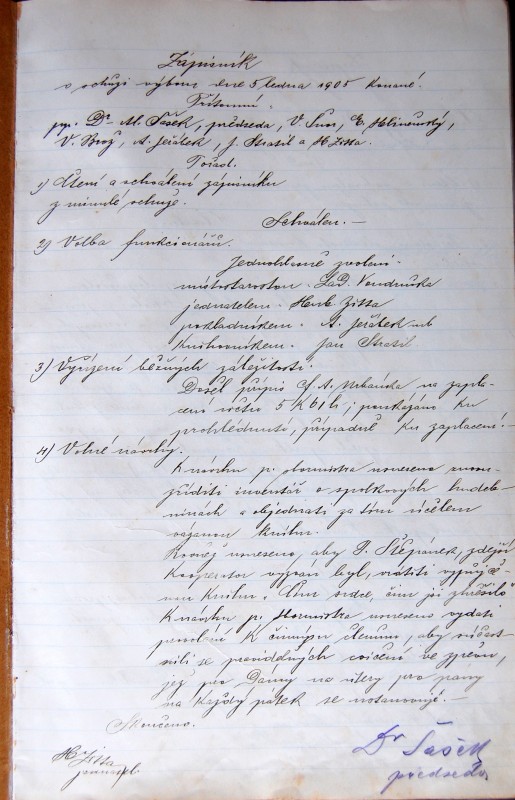 Zápisník
o schůzi výboru dne 5 ledna 1905 konané.
Přítomni:
pp. Dr. M. Šašek, předseda, V. E. Hlinovský,
V. Brož, A. Jeřábek, J. Strasil a H. Zitta.
Pořad.
1) Čtení a schválení zápisníku
z minulé schůze.
Schválen. —
2) Volba funkcionářů.
Jednohlasně zvoleni:
místostarostou. Lad. Vondruška
jednatelem. Herb. Zitta
pokladníkem. A. Jeřábek ml
knihovníkem. Jan Strasil
3) Vyřízení běžných záležitostí.
Došel přípis A. Urbánka na zapla-
cení účtu 5 K 61 h; poukázáno ku
prohlédnutí, případně ku zaplacení. —
4) Volné návrhy.
K návrhu p. sbormistra usneseno
zříditi inventář o spolkových hudeb-
ninách a objednati za tím účelem
knihu.
Rovněž usneseno, aby P. Štěpánek, zdejší
kooperator vyzván byl, vrátiti vypůjče-
nou knihu „Čím srdce,
K návrhu p. sbormistra usneseno vydati
k činným členům, aby súčast-
nili se pravidelných cvičení ve zpěvu,
jež pro Dámy na úterý pro pány
na každý pátek se ustanovují. —
Skončeno.
H Zitta
jednatel
Dr Šašek
předseda